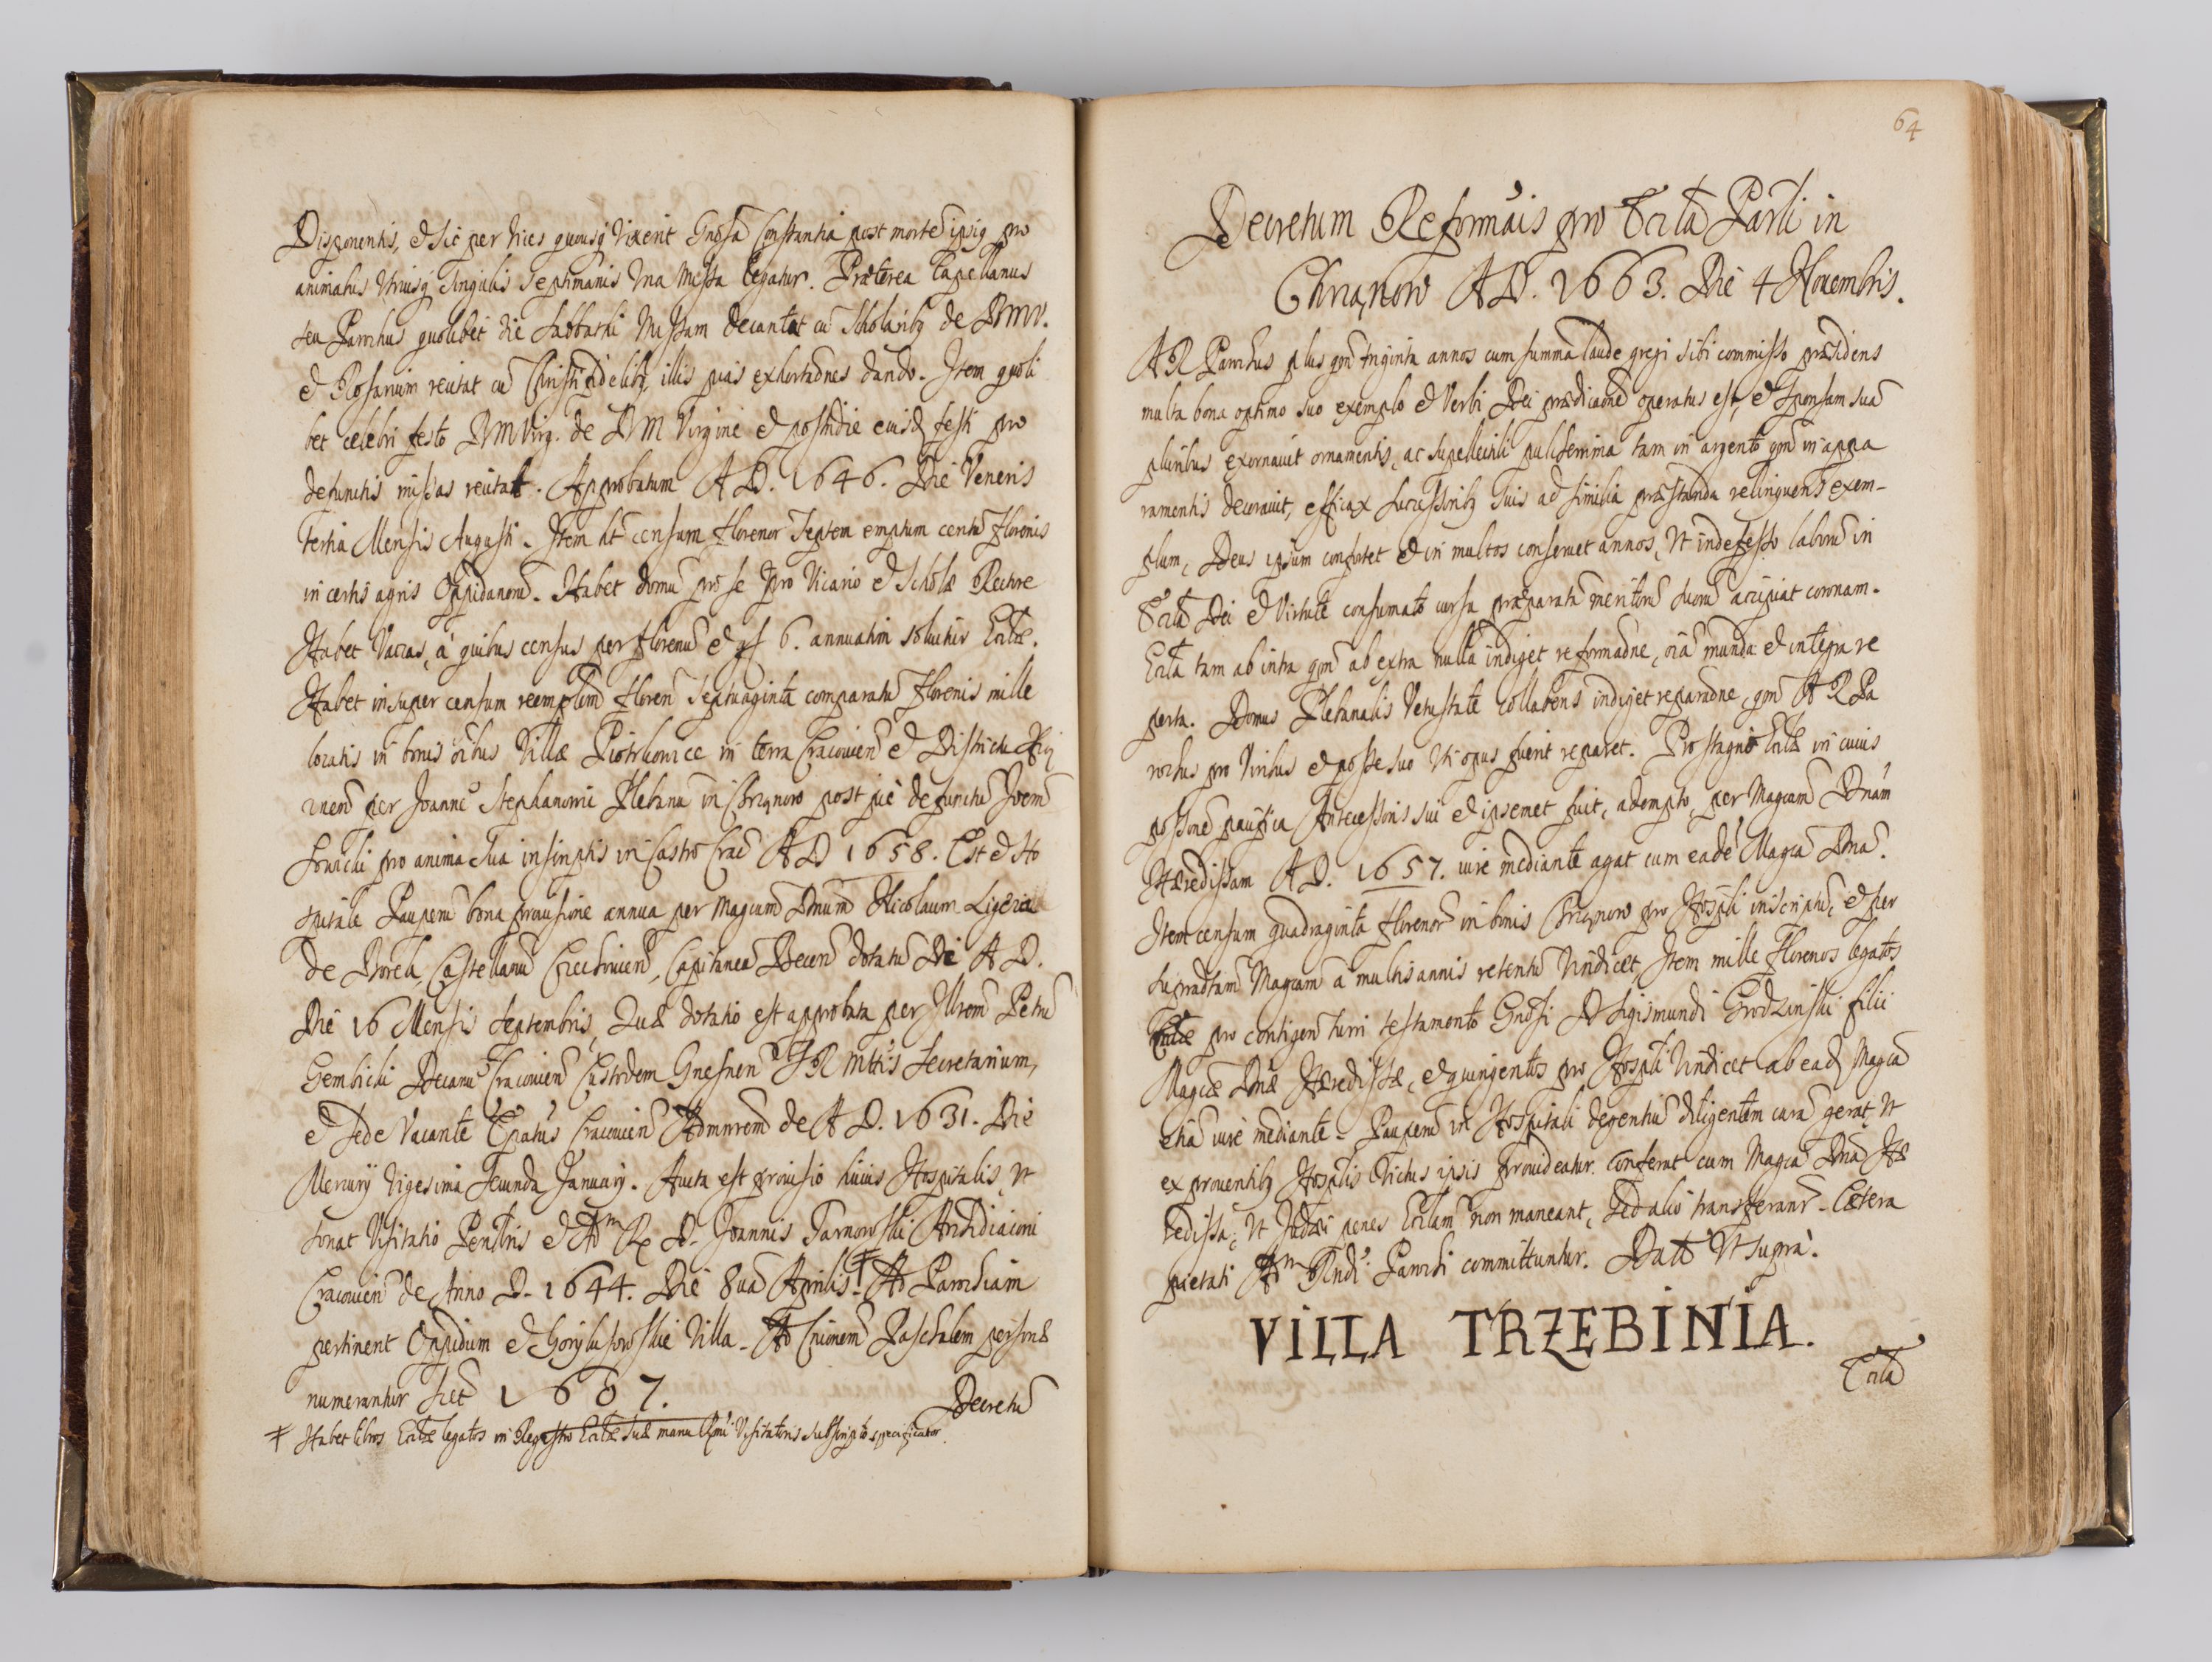 Disponentis, et sic per vices quousq vixerit Gnosa Constantia post morte ipsiq pro
animabus utriusq singulis septimanis una Missa legatur. Præterea Capellanus
seu Parochus quolibet die Sabbathi Missam decantat cu Scholaribq de BMV.
et Rosarium recitat cu Christi fidelibq, illis pias exhortaōnes dando. Item quoli
bet celebri festo BMVirg. de BM Virgine et postridie eiusd festi pro
defunctis missas recitat. Approbatum AD. 1646. Die Veneris
tertia Mensis Augusti. Item ht censum florenor septem emptum centu florenis
in certis agris Oppidanoru. Habet domu pro se pro Vicario et Scholæ Rectore
Habet Vaccas, à quibus census per florenu et gs 6. annuatim solvitur Ecclæ.
Habet insuper censum reemptlem floren septuaginta comparatu florenis mille
locatis in bonis oibus Villæ Piotrkowice in terra Cracovien et Districtu Xią
znen per Joanne Stephanowic Plebanu in Chrzanow post pie defunctu Joem
Łowicki pro anima sua inscriptis in Castro Crac AD 1658. Est et Ho
spitale Pauperu bona provisione annua per Magcum Dnum Nicolaum Ligęza
de Bobrek, Castellanu Czechovien, Capitaneu Biecen dotatu De AD.
Die 16 Mensis Septembris, Quæ dotatio est approbata per Illrem Petru
Gembicki Decanu Cracovien Custodem Gnesnen SR Mttis Secretarium,
et Sede Vacante Epatus Cracovien Admnrem de AD. 1631. Die
Mercurij vigesima secunda January. Aucta est provisio huius Hospitalis, ut
sonat Visitatio Penltris et Adm R D. Joannis Tarnowski Archidiaconi
Cracovien de Anno D. 1644. Die 8ua Aprilis. ǂ Ad Parochiam
pertinent Oppidum et Villa. Ad Cōionem Paschalem personæ
numerantur sict 1607.
Decretu
ǂ Habet libros Ecclæ legatos in Regestro Ecclæ suæ manu Rmi Visitatoris subscripto specificator.
64
Decretum Reformāis pro Eccla Parli in
Chrzanow AD. 1663. Die 4 Novembris.
AR Parochus plus qm triginta annos cum summa laude gregi sibi commisso præsidens
multa bona optimo suo exemplo et Verbi Dei prædicaōne operatus est, et Sponsam sua
pluribus exornavit ornamentis, ac supellectili pulcherrima tam in argento qm in appa
ramentis decoravit, efficax Successoribq suis ad similia præstanda relinquens exem-
plum, Deus ipsum confortet et in multos conservet annos, ut indefesso laboru in
Eccla Dei et Virtute consumato cursu præparata meritoru suoru accipiat coronam.
Eccla tam ab intra qm ab extra nulla indiget reformaōne, oia munda et integra re
perta. Domus Plebanalis vetustate collabens indiget reparaōne, qm AR Pa
rochus pro viribus et posse suo uti opus fuerit reparet. Pro stagno Ecclæ in cuius
possone paucifica Antecessoris sui et ipsemet fuit, adempto, per Magcam Dnam
Hæredissam AD. 1657. iure mediante agat cum eade Magca Dna.
Item censum quadraginta florenor in bonis Chrzanow pro Hospli inscriptu, et per
supradtam Magcam a multis annis retentu vindicet, Item mille florenos legatos
Ecclæ pro contigen turri testamento Gnosi D Sigismundi Grodzinski filii
Magcæ Dnæ Hæredissæ, et quingentos pro Hospli vindicet ab ead Magca
etia iure mediante. Pauperu in Hospitali degentiu diligentem cura gerat, ut
ex proventibq Hosplis Victus ipsis provideatur. Conferat cum Magca Dna Hæ
redissa, ut Judæi penes Ecclam non maneant, sed alio transferant. Cætera
pietati Adm Rndi Parochi committuntur. Datt ut supra.
VILLA TRZEBINIA.
Eccla